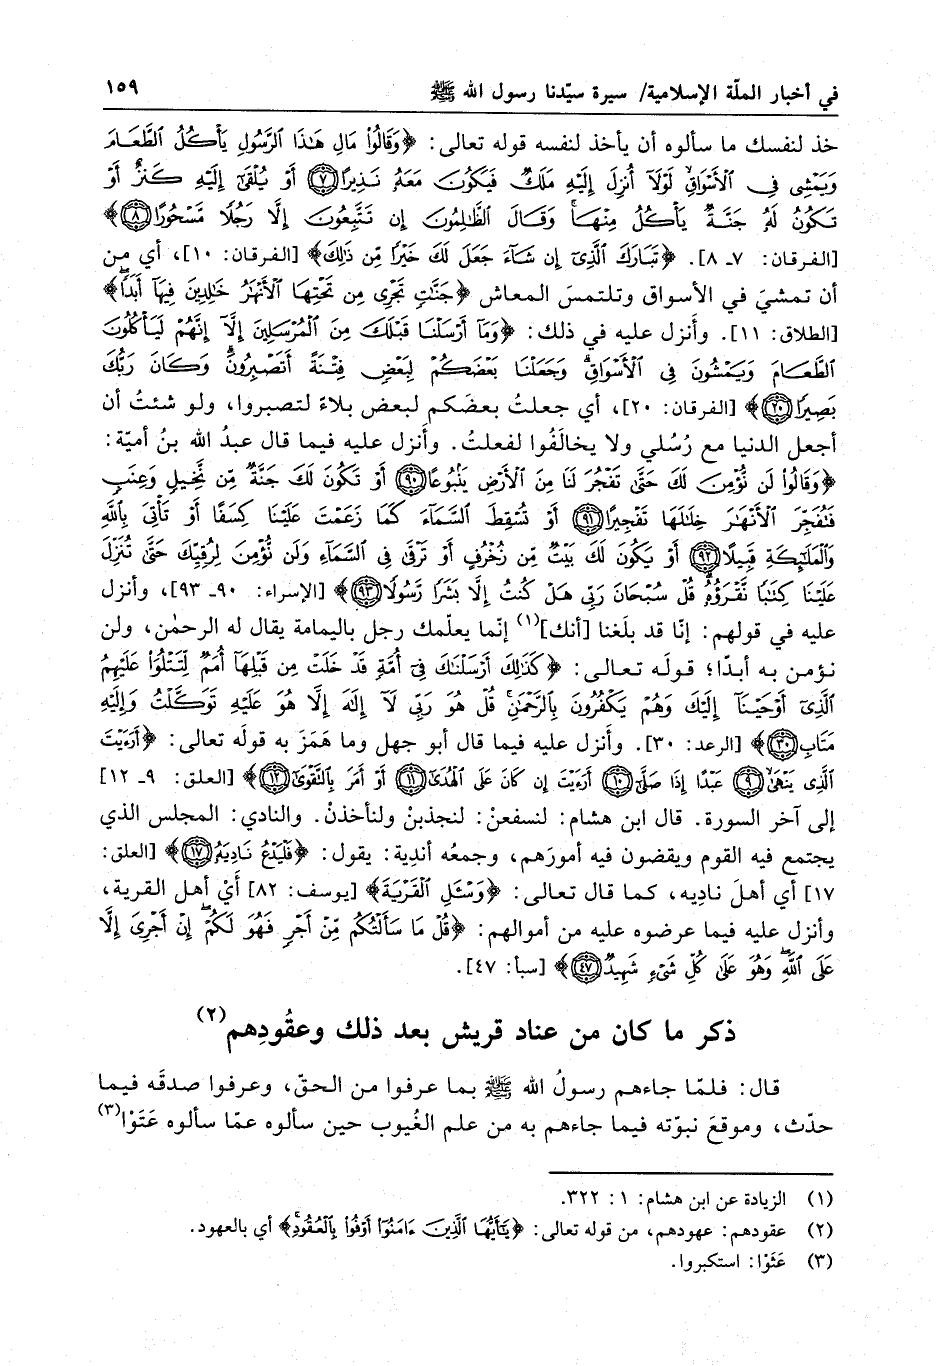 في أخبار الملّة الإسلامية/ سيرة سيّدنا رسول الله ﷺ ١٥٩
خذ لنفسك ما سألوه أن يأخذ لنفسه قوله تعالى: ﴿وَقَالُواْ مَالِ هَٰذَا ٱلرَّسُولِ يَأْكُلُ ٱلطَّعَامَ
وَيَمْشِى فِى ٱلْأَسْوَاقِ لَوْلَآ أُنزِلَ إِلَيْهِ مَلَكٌ فَيَكُونَ مَعَهُۥ نَذِيرًا ﴿٧﴾ أَوْ يُلْقَىٰٓ إِلَيْهِ كَنزٌ أَوْ
تَكُونُ لَهُۥ جَنَّةٌ يَأْكُلُ مِنْهَا وَقَالَ ٱلظَّٰلِمُونَ إِن تَتَّبِعُونَ إِلَّا رَجُلًا مَّسْحُورًا ﴿٨﴾﴾
[الفرقان: ٧ـ ٨]. ﴿تَبَارَكَ ٱلَّذِىٓ إِن شَآءَ جَعَلَ لَكَ خَيْرًا مِّن ذَٰلِكَ﴾ [الفرقان: ١٠]، أي من
أن تمشيَ في الأسواق وتلتمسَ المعاش ﴿جَنَّٰتٍ تَجْرِى مِن تَحْتِهَا ٱلْأَنْهَٰرُ خَٰلِدِينَ فِيهَآ أَبَدًا﴾
[الطلاق: ١١]. وأَنزل عليه في ذلك: ﴿وَمَآ أَرْسَلْنَا قَبْلَكَ مِنَ ٱلْمُرْسَلِينَ إِلَّآ إِنَّهُمْ لَيَأْكُلُونَ
ٱلطَّعَامَ وَيَمْشُونَ فِى ٱلْأَسْوَاقِ وَجَعَلْنَا بَعْضَكُمْ لِبَعْضٍ فِتْنَةً أَتَصْبِرُونَ وَكَانَ رَبُّكَ
بَصِيرًا ﴿٢٠﴾﴾ [الفرقان: ٢٠]، أي جعلتُ بعضَكم لبعض بلاءً لتصبروا، ولو شئتُ أن
أجعل الدنيا مع رُسُلي ولا يخالَفُوا لفعلتُ. وأَنزل عليه فيما قال عبدُ الله بنُ أميّة:
﴿وَقَالُواْ لَن نُّؤْمِنَ لَكَ حَتَّىٰ تَفْجُرَ لَنَا مِنَ ٱلْأَرْضِ يَنۢبُوعًا ﴿٩٠﴾ أَوْ تَكُونَ لَكَ جَنَّةٌ مِّن نَّخِيلٍ وَعِنَبٍ
فَتُفَجِّرَ ٱلْأَنْهَٰرَ خِلَٰلَهَا تَفْجِيرًا ﴿٩١﴾ أَوْ تُسْقِطَ ٱلسَّمَآءَ كَمَا زَعَمْتَ عَلَيْنَا كِسَفًا أَوْ تَأْتِىَ بِٱللَّهِ
وَٱلْمَلَٰٓئِكَةِ قَبِيلًا ﴿٩٢﴾ أَوْ يَكُونَ لَكَ بَيْتٌ مِّن زُخْرُفٍ أَوْ تَرْقَىٰ فِى ٱلسَّمَآءِ وَلَن نُّؤْمِنَ لِرُقِيِّكَ حَتَّىٰ تُنَزِّلَ
عَلَيْنَا كِتَٰبًا نَّقْرَؤُهُۥ قُلْ سُبْحَانَ رَبِّى هَلْ كُنتُ إِلَّا بَشَرًا رَّسُولًا ﴿٩٣﴾﴾ [الإسراء: ٩٠ـ ٩٣]، وأنزل
عليه في قولهم: إنّا قد بلَغنا [أنك]⁽¹⁾ إنّما يعلّمك رجل باليمامة يقال له الرحمٰن، ولن
نؤمن به أبدًا؛ قولَه تعالى: ﴿كَذَٰلِكَ أَرْسَلْنَٰكَ فِىٓ أُمَّةٍ قَدْ خَلَتْ مِن قَبْلِهَآ أُمَمٌ لِّتَتْلُوَاْ عَلَيْهِمُ
ٱلَّذِىٓ أَوْحَيْنَآ إِلَيْكَ وَهُمْ يَكْفُرُونَ بِٱلرَّحْمَٰنِ قُلْ هُوَ رَبِّى لَآ إِلَٰهَ إِلَّا هُوَ عَلَيْهِ تَوَكَّلْتُ وَإِلَيْهِ
مَتَابِ ﴿٣٠﴾﴾ [الرعد: ٣٠]. وأنزل عليه فيما قال أبو جهل وما هَمَزَ به قولَه تعالى: ﴿أَرَءَيْتَ
ٱلَّذِى يَنْهَىٰ ﴿٩﴾ عَبْدًا إِذَا صَلَّىٰٓ ﴿١٠﴾ أَرَءَيْتَ إِن كَانَ عَلَى ٱلْهُدَىٰٓ ﴿١١﴾ أَوْ أَمَرَ بِٱلتَّقْوَىٰٓ ﴿١٢﴾﴾ [العلق: ٩ـ ١٢]
إلى آخر السورة. قال ابن هشام: لنسفعنْ: لنجذبنْ ولنأخذنْ. والنادي: المجلس الذي
يجتمع فيه القوم ويقضون فيه أمورَهم، وجمعُه أندِية: يقول: ﴿فَلْيَدْعُ نَادِيَهُۥ ﴿١٧﴾﴾ [العلق:
١٧] أي أهلَ نادِيه، كما قال تعالى: ﴿وَسْـَٔلِ ٱلْقَرْيَةَ﴾ [يوسف: ٨٢] أَيْ أهل القرية،
وأنزل عليه فيما عرضوه عليه من أموالهم: ﴿قُلْ مَا سَأَلْتُكُم مِّنْ أَجْرٍ فَهُوَ لَكُمْ إِنْ أَجْرِىَ إِلَّا
عَلَى ٱللَّهِ وَهُوَ عَلَىٰ كُلِّ شَىْءٍ شَهِيدٌ ﴿٤٧﴾﴾ [سبأ: ٤٧].
ذكر ما كان من عناد قريش بعد ذلك وعقُودِهم⁽٢⁾
قال: فلمّا جاءهم رسولُ الله ﷺ بما عرفوا من الحقّ، وعرفوا صدقَه فيما
حدّث، وموقعَ نبوّته فيما جاءهم به من علم الغُيوب حين سألوه عمّا سألوه عَتَوْا⁽٣⁾
(١) الزيادة عن ابن هشام: ١ : ٣٢٢.
(٢) عقودهم: عهودهم، من قوله تعالى: ﴿يَٰٓأَيُّهَا ٱلَّذِينَ ءَامَنُوٓا۟ أَوْفُوا۟ بِٱلْعُقُودِ﴾ أي بالعهود.
(٣) عَتَوْا: استكبروا.